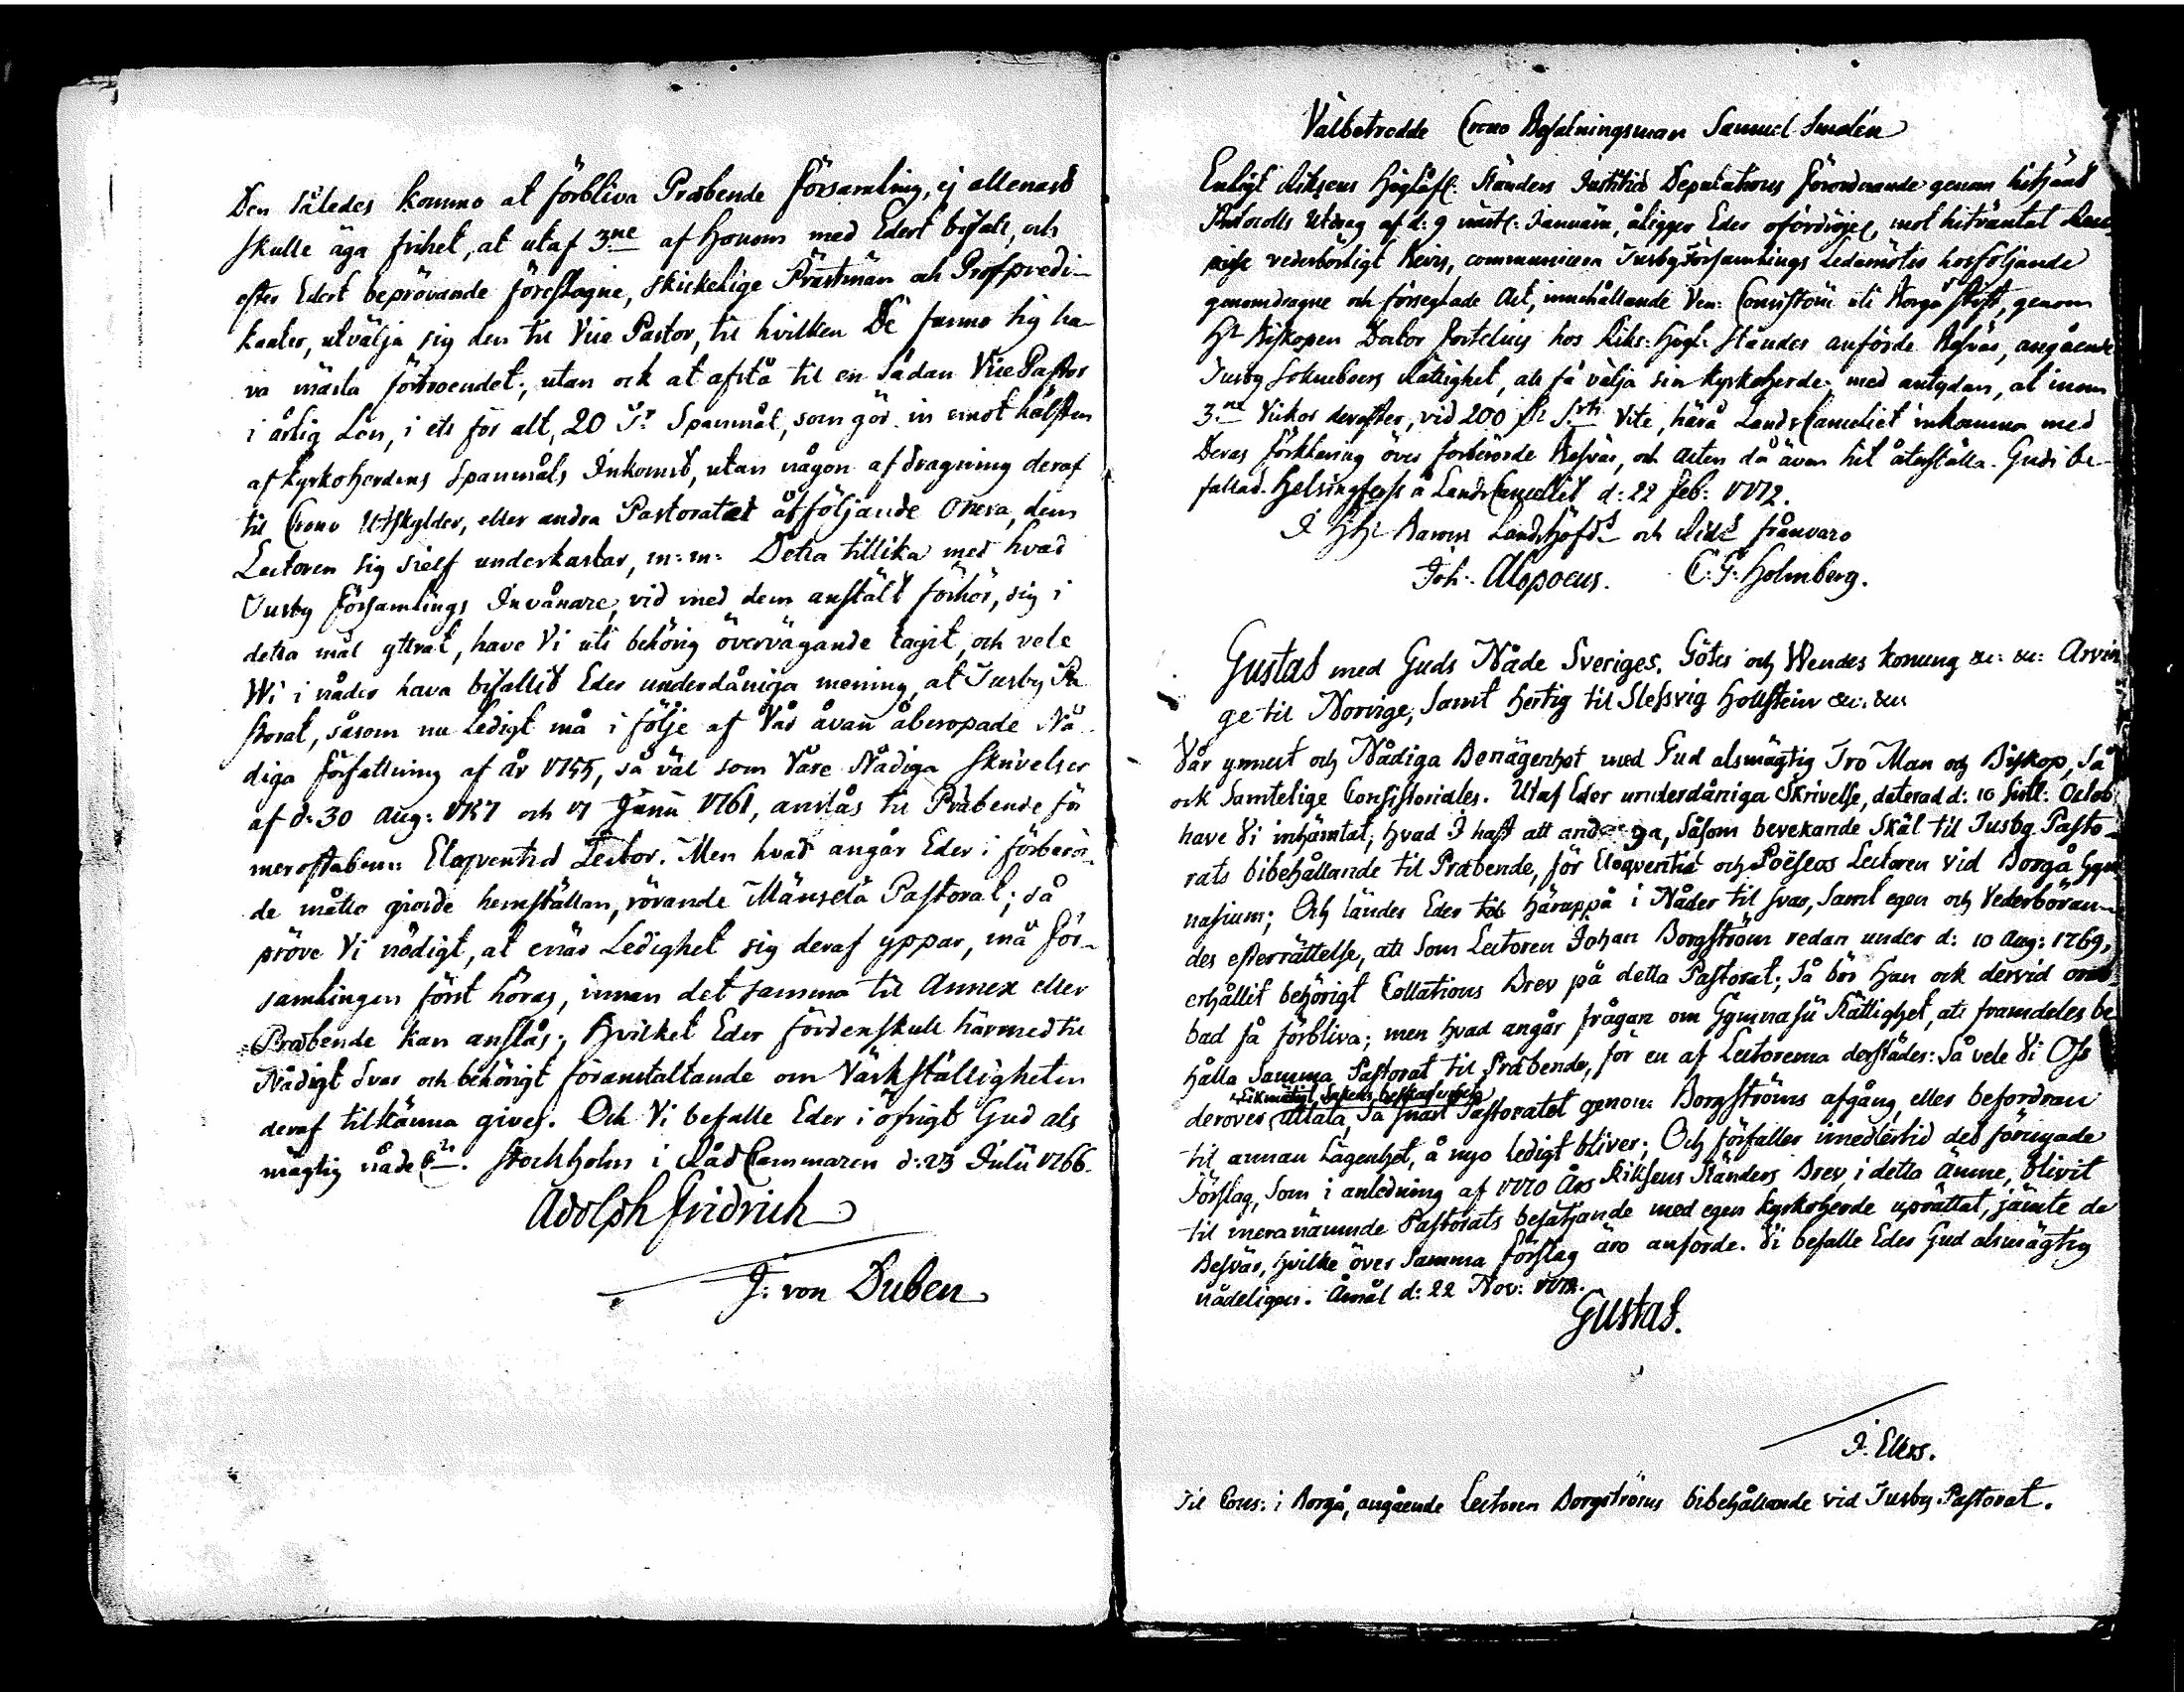 Den således komme at förbliva Præbende Församling, ej allenast
skulle äga frihet, at utaf 3ne af Honom med Edert bifall, och
efter Edert beprövande föreslagne, skickelige Prästmän och Profpredi-
kanter, utvälja sig den til Vice Pastor, til hvilken De funne sig ha-
va mästa förtroendet; utan ock at afstå til en sådan Vice Pastor
i årlig Lön, i ett för alt, 20 Tr Spannmål, som gör in emot hälften
af kyrkoherdens Spanmåls Inkomst, utan någon afdragning deraf
til Crono Utskylder, eller andra Pastoratet åtföljande Onera, dem
Lectoren sig sielf underkastar, m: m: Detta tillika med hvad
Tusby Församlings Invånare, vid med dem anstält förhör, sig i
detta mål yttrat, have Vi uti behörig övervägande tagit, och vele
Wi i nåder hava bifallit Eder underdåniga mening, at Tusby Pa
storat, såsom nu Ledigt må i följe af Vår åvan åberopade Nå-
diga författning af År 1755, så väl som Våre Nådiga Skrivelser
af d: 30 Aug: 1757 och 17 Junii 1761, anslås til Præbende för
meroftabem: Eloqventiæ Lector. Men hvad angår Eder i förberör-
de måtto giorde hemställan, rörande Mänselä Pastorat; så
pröve Vi nödigt, at enär Ledighet sig deraf yppar, må För-
samlingen först höras, innan det samma til Annex eller
Præbende kan anslås; Hvilket Eder fördenskull härmed til
Nådigt Svar och behörigt föranstaltande om Värkställigheten
deraf tilkänna gives. Och Vi befalle Eder i öfrigt Gud als
mägtig nådel:n. Stockholm i Råd Cammaren d: 23 Julii 1766.
Adolph Fridrich
J: von Duben
Välbetrodde Crono Befalningsman Samuel Smalén
Enligt Riksens Höglöfl: Ständers Justitiæ Deputations förordnande genom hitsänd
Protocolls Utdrag af d: 9 näst: Januarii, åligger Eder ofördröjel, mot hitväntat
vederbörligt Bevis, communicera Tusby Församlings Ledamöter hosföljande
genomdragne och förseglade Act, innehållande Ven: Consistorii uti Borgå Stift, genom
Hr Biskopen Doctor Fortelius hos Riks: Högl: Ständer anförde Besvär, angående
Tusby Sokneboers Rättighet, att få välja sin kyrkoherde; med antydan, at inom
3ne Vickor derefter, vid 200 Smt Vite, härå Lands Cancelliet inkomma med
Deras förklaring över förberörde Besvär, och Acten då även hit återställa. Gudi be-
fallad. Helsingfors å Lands Cancelliet d: 22 Feb: 1772.
I Hr Barons Landshöfd: och Ridd: frånvaro
Joh: Alopoeus. C: G: Holmberg.
Gustaf med Guds Nåde Sveriges, Götes och Wendes konung &c: &c: Arvin
ge til Norrige, Samt Hertig til Slesvig Hollstein &c: &c:
Vår ynnest och Nådiga Benägenhet med Gud alsmägtig Tro Man och Biskop, Så
ock Samtelige Consistoriales. Utaf Eder underdåniga Skrivelse, daterad d: 10 sistl: Octob
have Vi inhämtat, hvad I haft att andraga, Såsom bevekande Skäl til Tusby Pasto-
rats bibehållande til Præbende, för Eloqventiæ och Poëseos Lectoren vid Borgå Gym
nasium; Och länder Eder häruppå i Nåder til Svar, Samt egen och Vederböran-
des efterrättelse, att Som Lectoren Johan Borgström redan under d: 10 Aug: 1769,
erhållit behörigt Collations Brev på detta Pastorat; Så bör Han ock dervid oru-
bad få förbliva; men hvad angår frågan om Gymnasii Rättighet, att framdeles be
hålla Samma Pastorat til Præbende, för en af Lectorerna derstädes: Så vele Vi Oss
Likmätigt Sakens beskaffenhet
derover utlåta, Så snart Pastoratet genom Borgströms afgång, eller befordran
til annan Lägenhet, å nyo ledigt bliver; Och förfaller imedlertid det förnyade
Förslag, Som i anledning af 1770 Års Riksens Ständers Brev, i detta Ämne, blivit
til meranämnde Pastorats besätjande med egen kyrkoherde uprättat, jämte de
Besvär, hvilke över Samma Förslag äro anförde. Vi befalle Eder Gud alsmägtig
nådeligen. Åmål d: 22 Nov: 1772.
Gustaf.
J: Ellers.
Til Cons: i Borgå, angående Lectoren Borgströms bibehållande vid Tusby Pastorat.